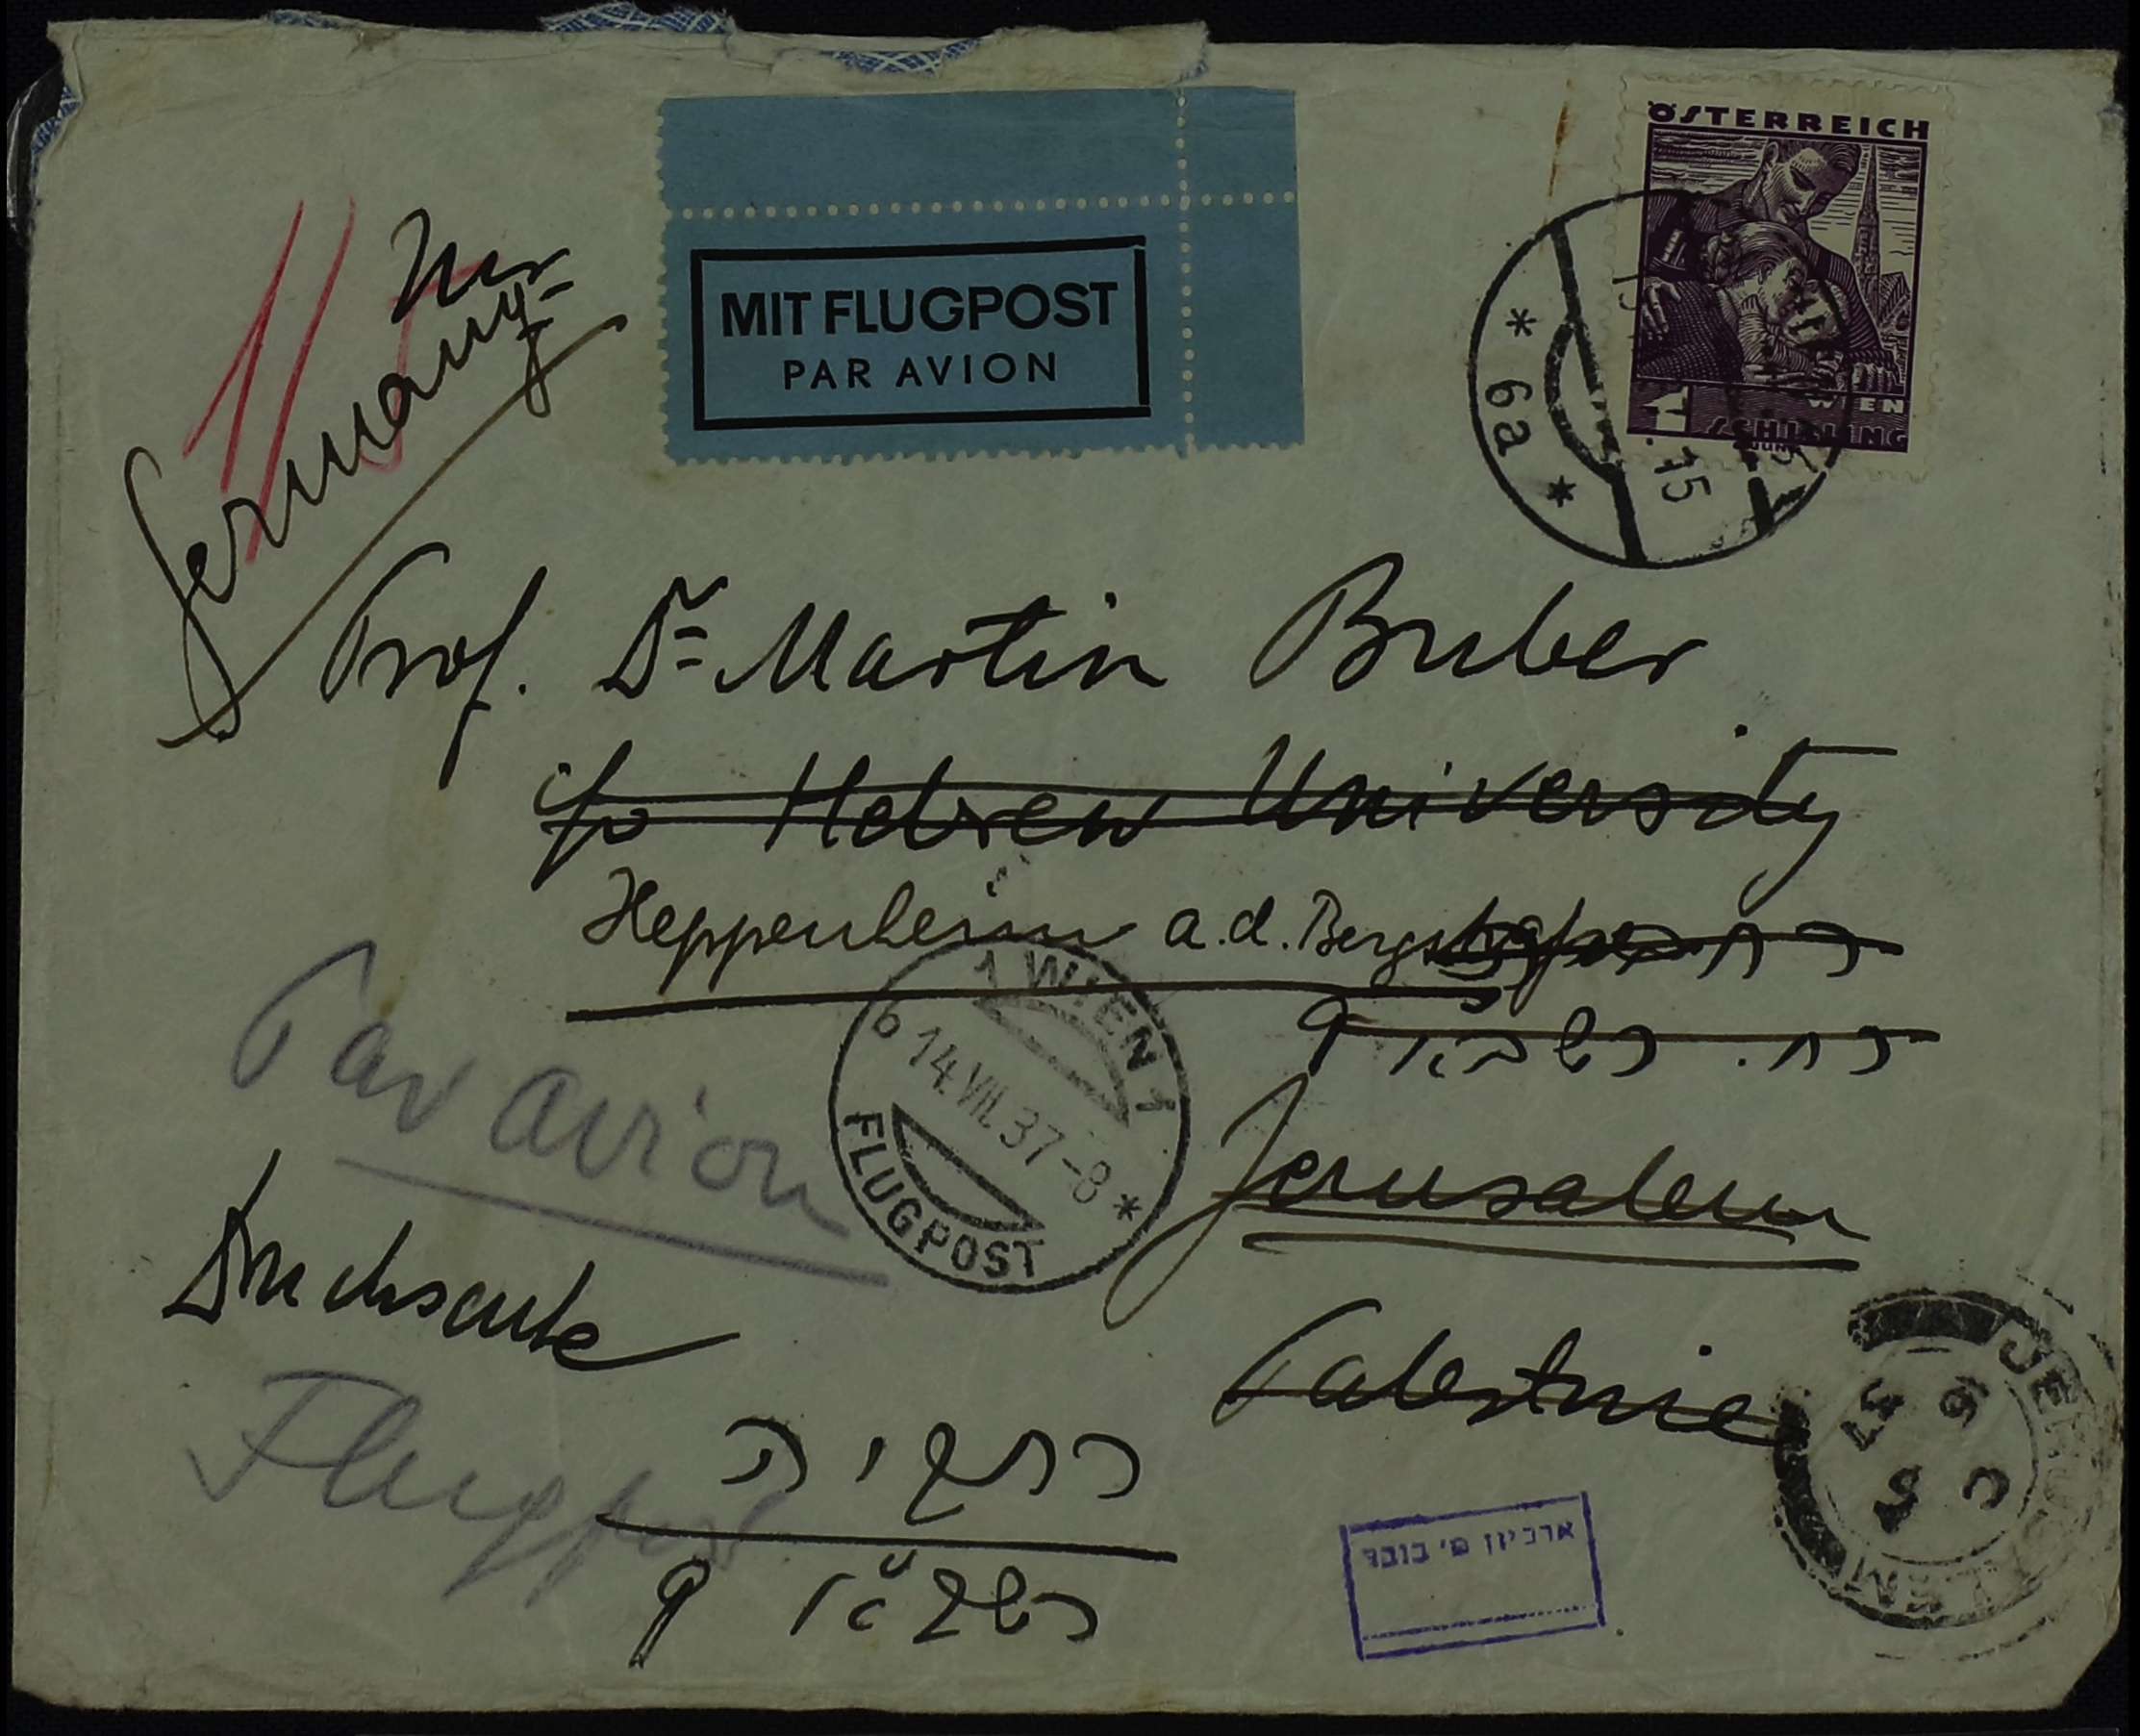 ÖSTERREICH
WIEN
1 SCHILLING
MIT FLUGPOST
PAR AVION
* 6a *
15
Germany
Prof. Dr Martin Buber
c/o Hebrew University
Heppenheim a.d. Bergstr
רח. רשב״א 9
Jerusalem
Palestine
Par avion
1 WIEN 1
6 14.VII.37-8 *
FLUGPOST
Drucksache
Flugpost
רחביה
רשב״א 9
ארכיון מ׳ בובר
JERUSALEM
37